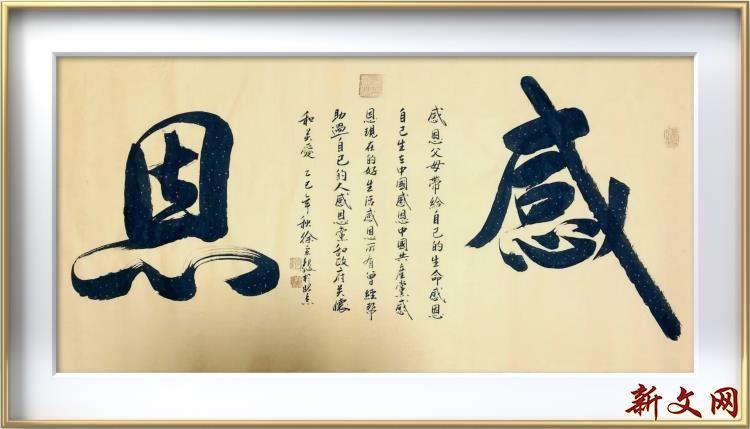 感
感恩父母帶給自己的生命感恩
自己生在中國感恩中國共產黨感
恩現在的好生活感恩所有曾經幫
助過自己的人感恩黨和政府关懷
和关愛 乙巳年秋徐
恩
新文网